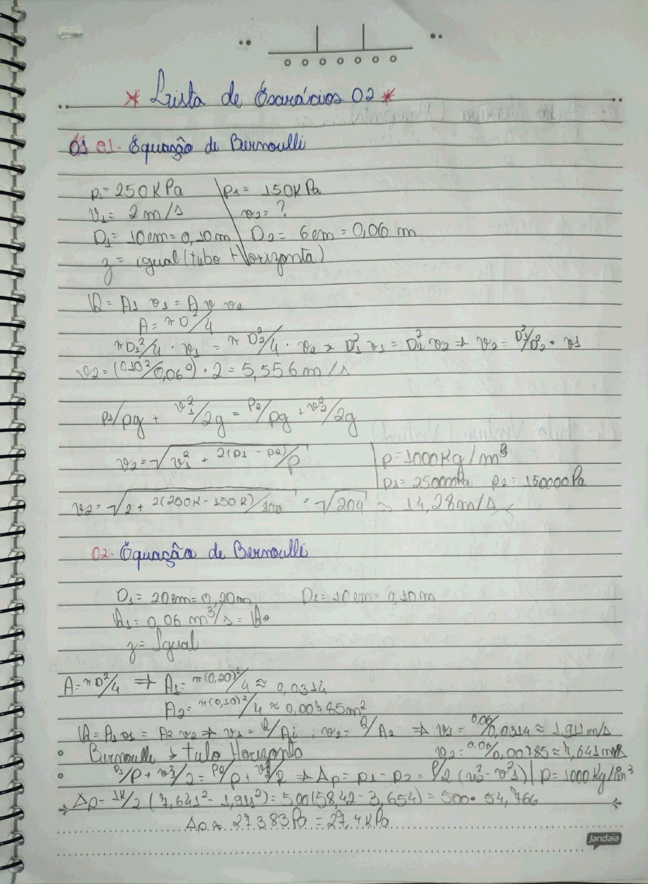 * Lista de Exercícios 02 *
01 01. Equação de Bernoulli
p1 = 250KPa p1 = 150KPa
v1 = 2 m/s v2 = ?
D1 = 10cm = 0,10m D2 = 6cm = 0,06 m
z = igual (tubo Horizonta)
Q = A1 v1 = A v v2
A = πD²/4
πD1²/4 · v1 = π D2²/4 · v2 → D1² v1 = D2² v2 → v2 = D1²/D2² · v1
v2 = (0,10²/0,06²) · 2 = 5,556 m/s
p1/pg + v1²/2g = p2/pg + v2²/2g
v2 = √v1² + 2(p1 - p2)/p p = 1000Kg/m³
p1 = 250000Pa p2 = 150000Pa
v2 = √2 + 2(200K - 150K)/100 = √204 ≈ 14,28m/s
02. Equação de Bernoulli
D1 = 20cm = 0,20m D2 = 10cm = 0,10m
Q1 = 0,06 m³/s = Q2
z = Igual
A = πD²/4 ⇒ A1 = π(0,20)²/4 ≈ 0,0314
A2 = π(0,10)²/4 ≈ 0,00785m²
Q = A1 v1 = A2 v2 → v1 = Q/A1 , v2 = Q/A2 ⇒ v1 = 0,06/0,0314 ≈ 1,911 m/s
• Bernoulli → tubo Horizonta v2 = 0,06/0,00785 ≈ 7,641 m/s
• p1/p + v1²/2 = p2/p + v2²/2 ⇒ Δp = p1 - p2 = p/2 (v2² - v1²) | p = 1000Kg/m³
Δp = 1K/2 (7,641² - 1,911²) = 500(58,42 - 3,654) = 500 · 54,766
Δp ≈ 27.383Pa = 27,4KPa
jandaia